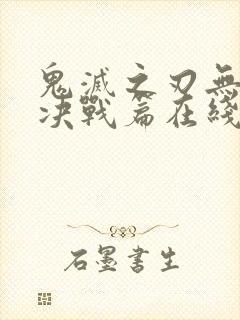 鬼滅之刃無
决戰篇在綫
石墨書生